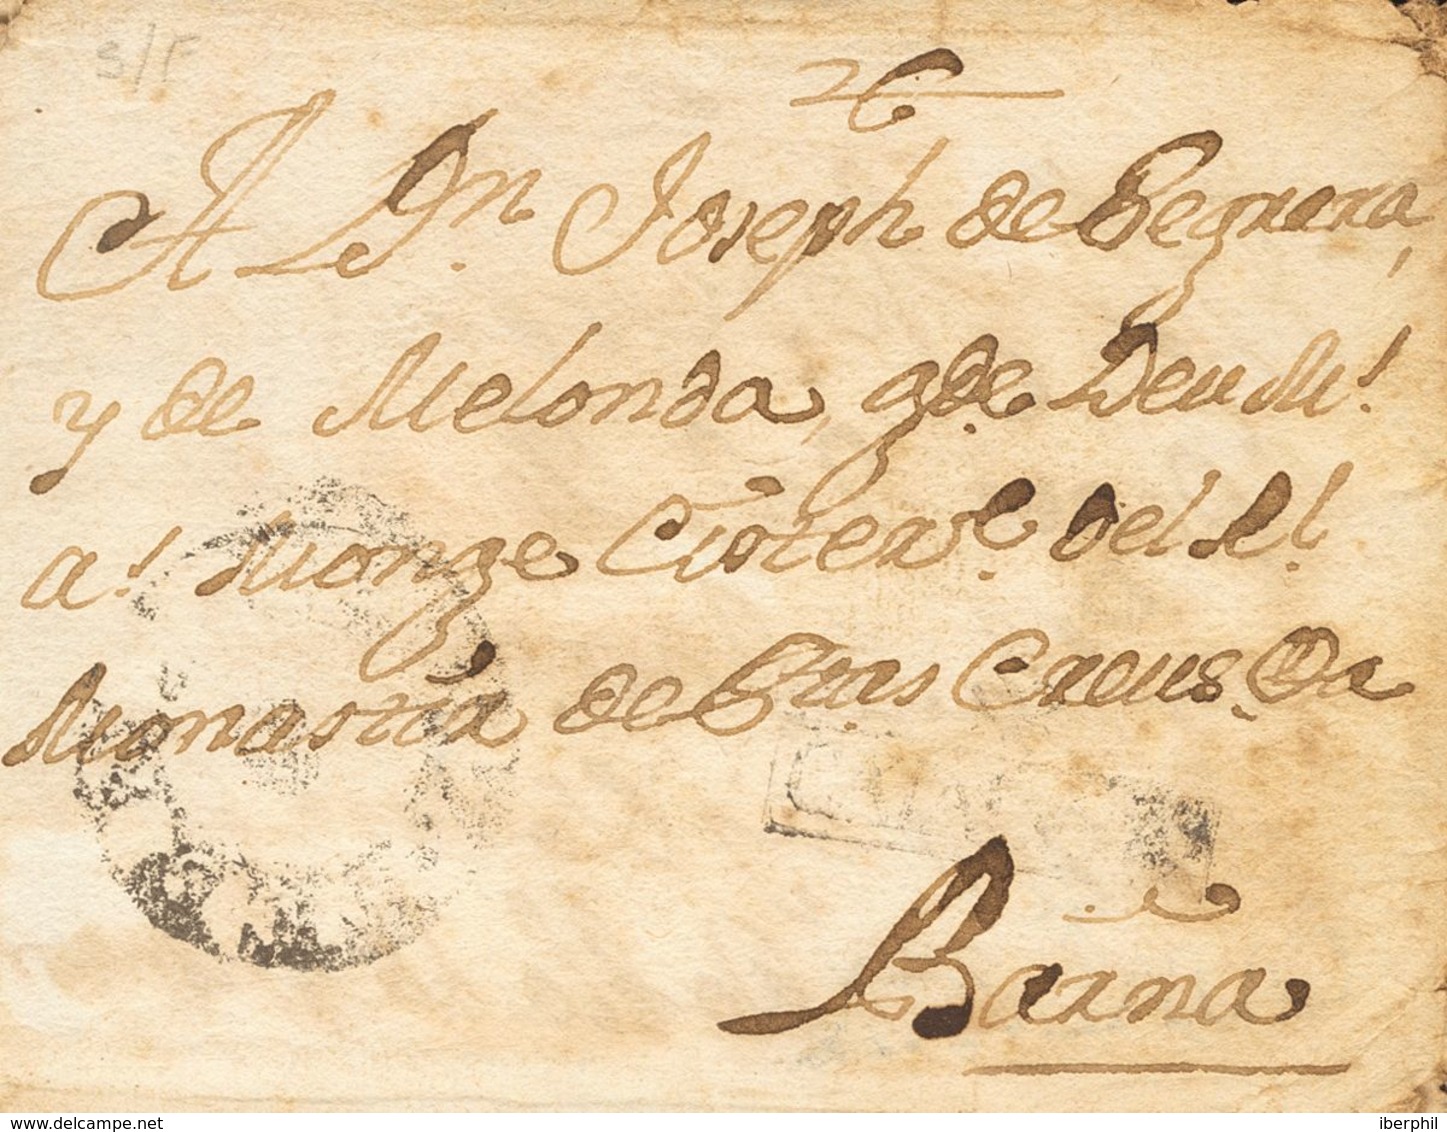 S/F
A Dn. Joseph de Pegruera,
y de Melonda, gde. Deu M!
a! Monge Cisterse. del Rl.
Monastir de Stas Creus. Da
Barna
www.delcampe.net
iberphil